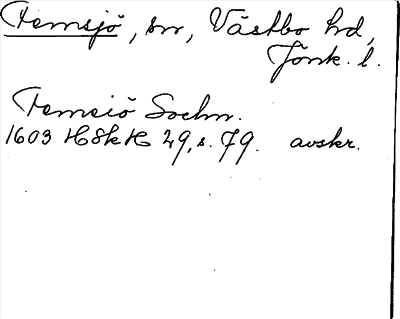 Femsjö, sn, Västbo hd,
Jönk. l.
Femsiö Sochn.
1603 HSkH 29, s. 79. avskr.